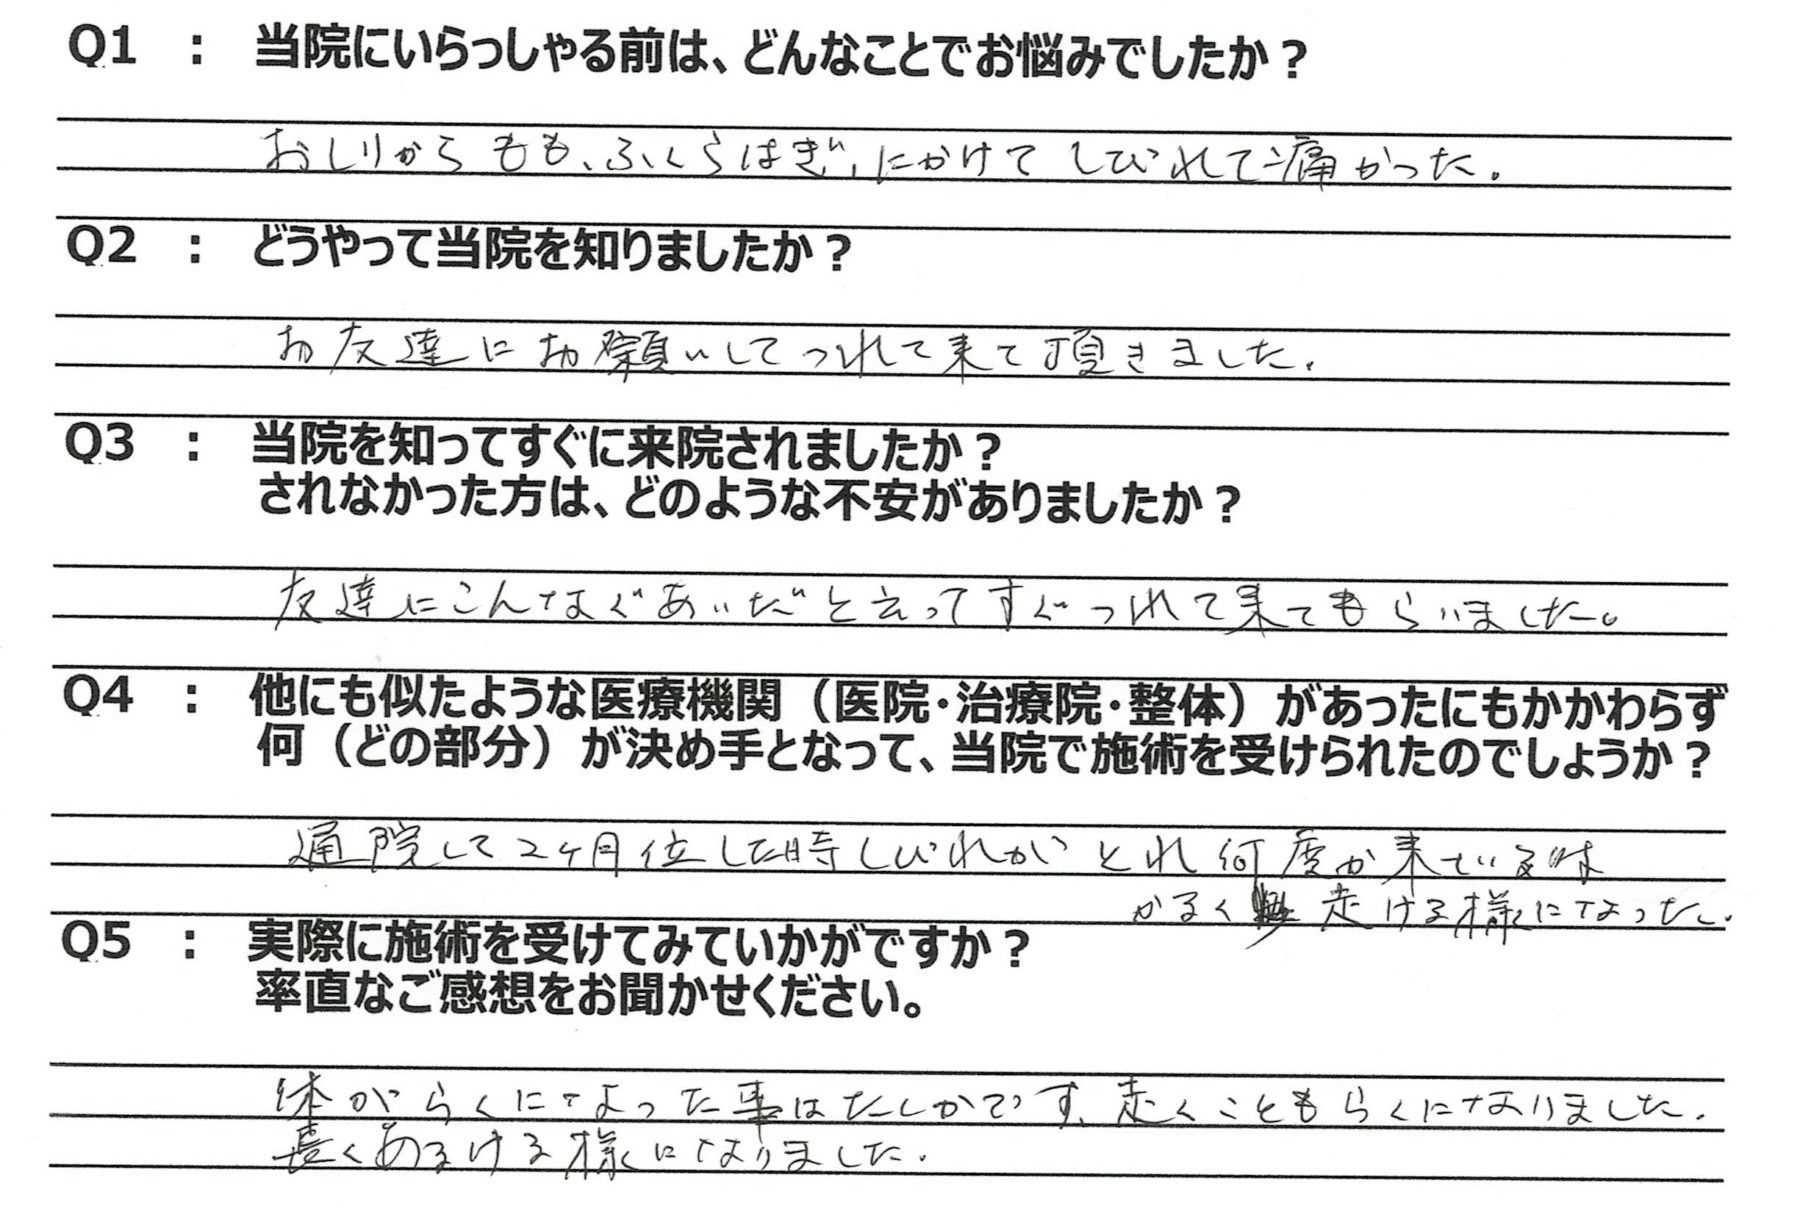 Q1 : 当院にいらっしゃる前は、どんなことでお悩みでしたか？
おしりからもも、ふくらはぎ、にかけてしびれて痛かった。
Q2 : どうやって当院を知りましたか？
お友達にお願いしてつれて来て頂きました。
Q3 : 当院を知ってすぐに来院されましたか？
されなかった方は、どのような不安がありましたか？
友達にこんなぐあいだと言ってすぐつれて来てもらいました。
Q4 : 他にも似たような医療機関（医院・治療院・整体）があったにもかかわらず
何（どの部分）が決め手となって、当院で施術を受けられたのでしょうか？
通院して2ヶ月位した時しびれがとれ何度か来ている時
かるく走ける様になった。
Q5 : 実際に施術を受けてみていかがですか？
率直なご感想をお聞かせください。
体がらくになった事はたしかです、走くこともらくになりました。
長くあるける様になりました。